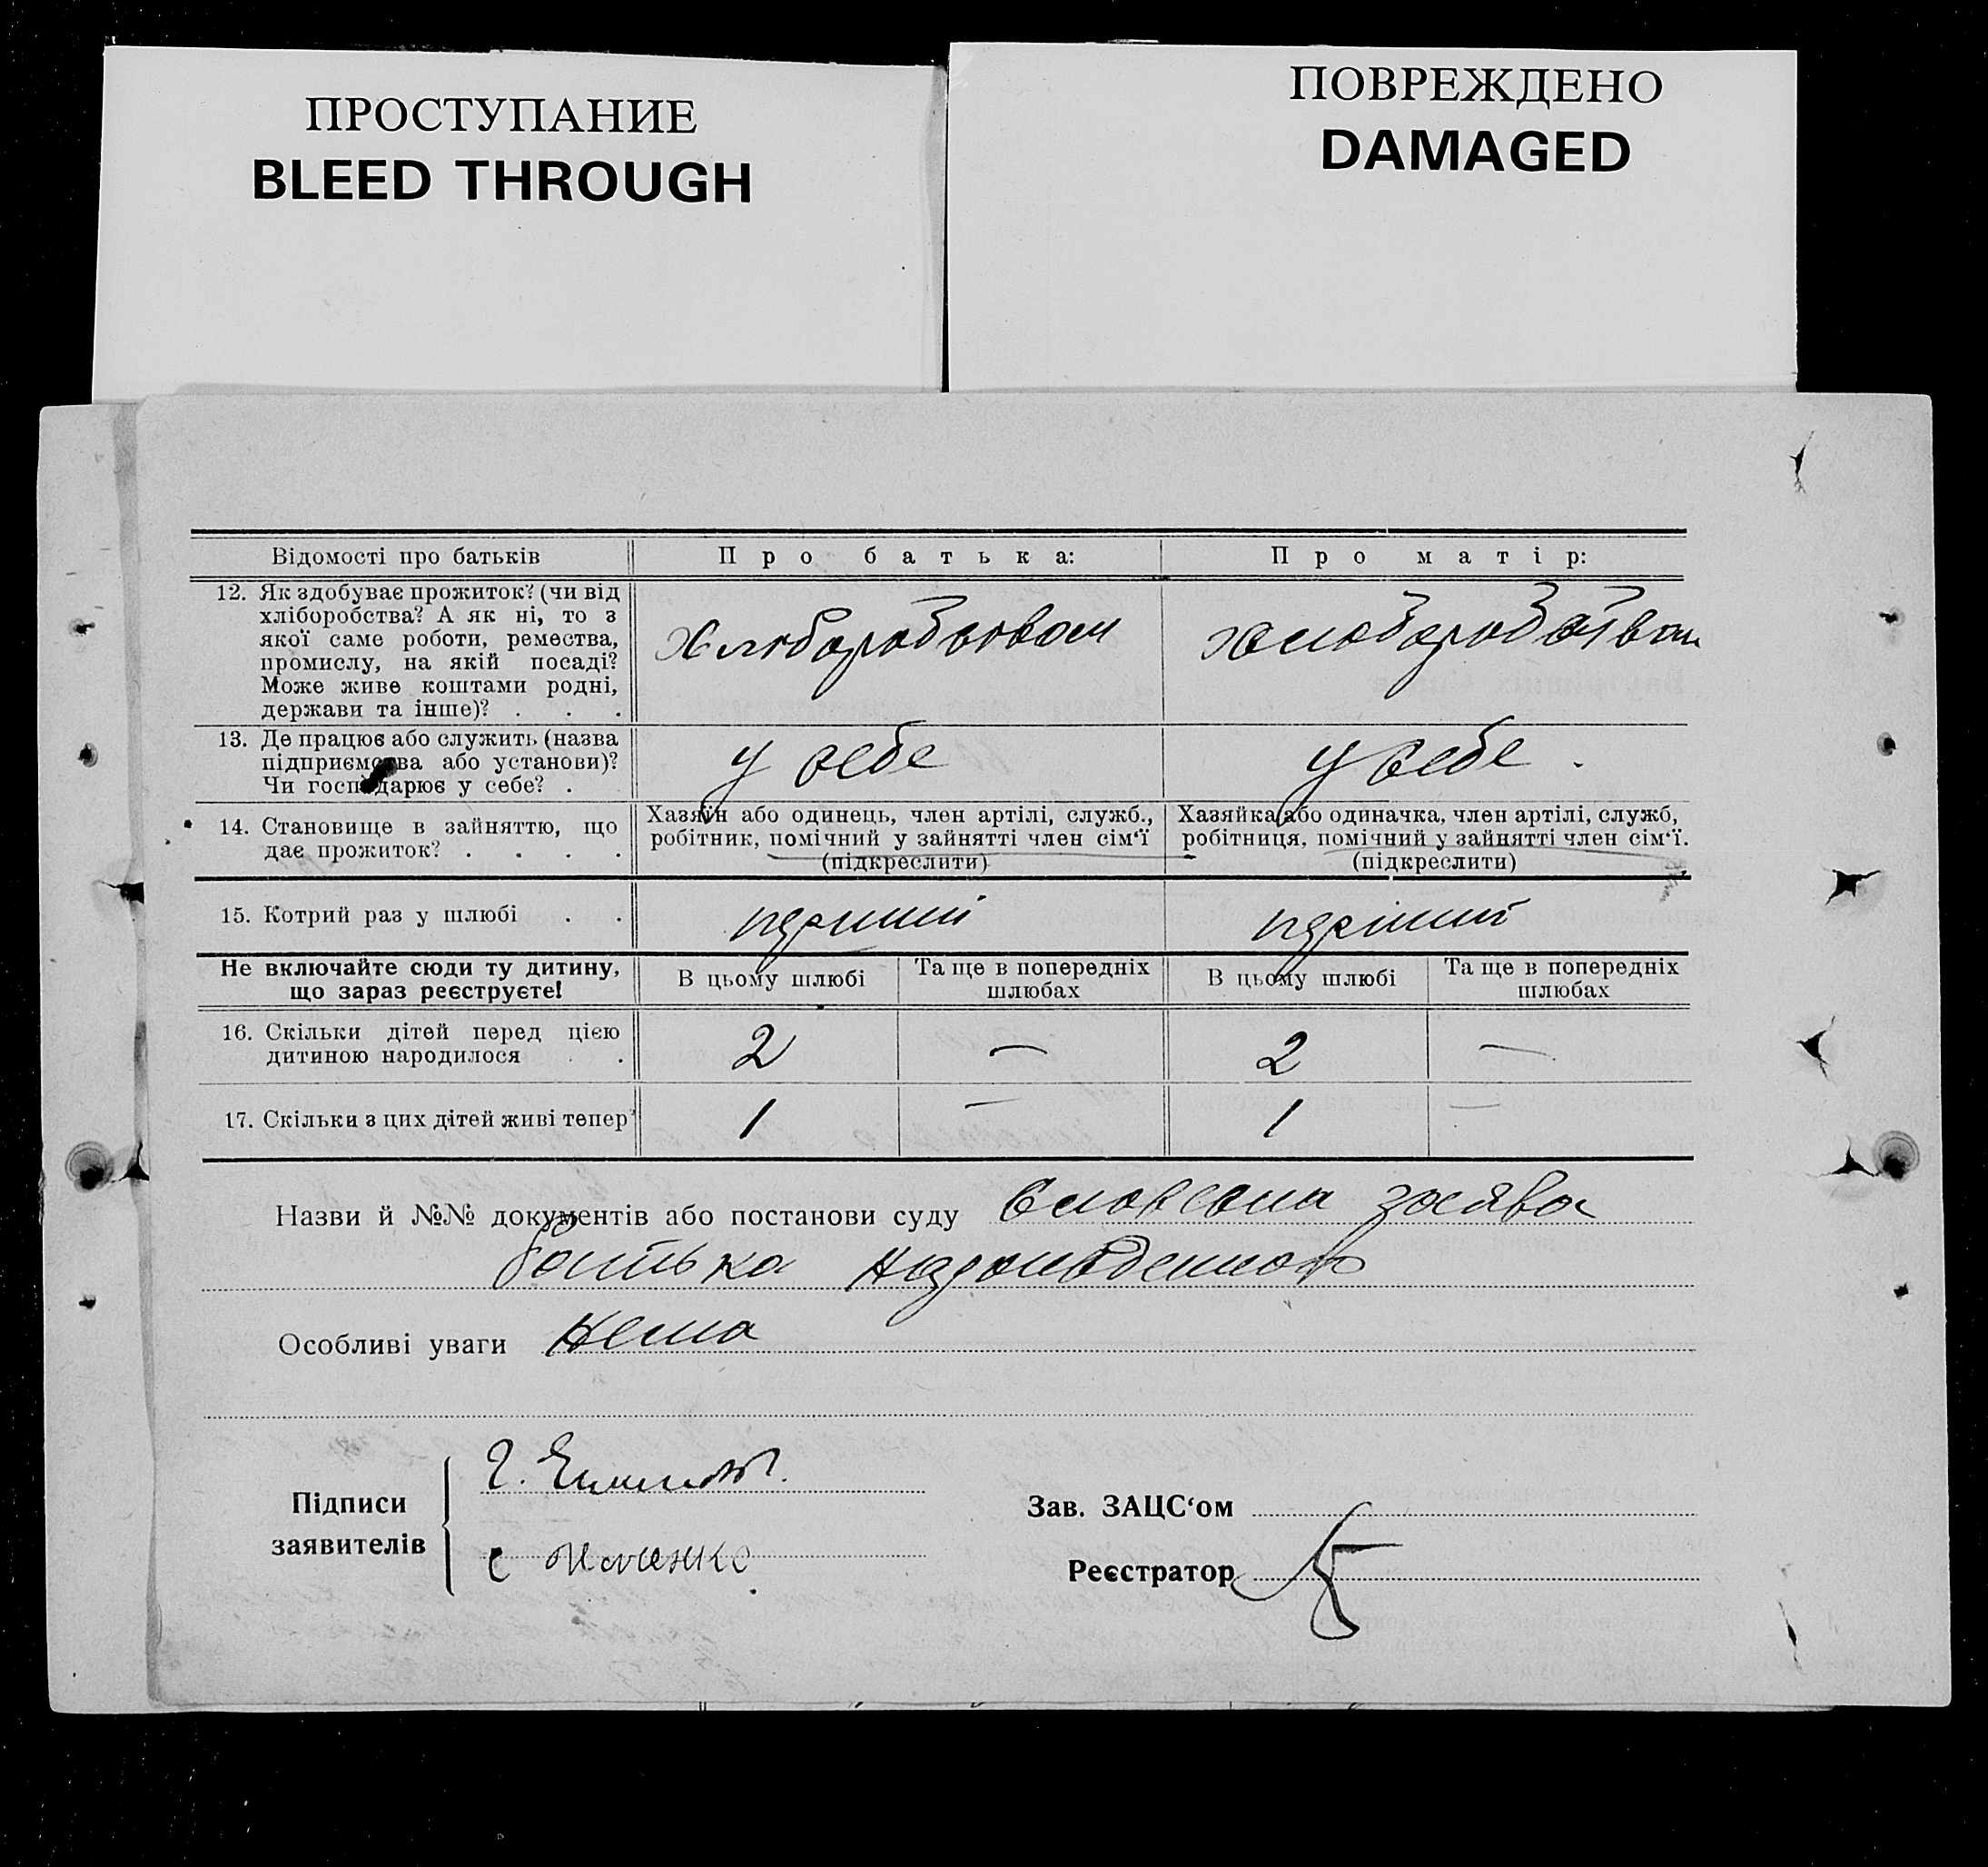 ПРОСТУПАНИЕ
BLEED THROUGH
ПОВРЕЖДЕНО
DAMAGED
Відомості про батьків
Про батька:
Про матір:
12. Як здобуває прожиток? (чи від
хліборобства? А як ні, то з
якої саме роботи, ремества,
промислу, на якій посаді?
Може живе коштами родні,
держави та інше)? . . .
Хлібороб
хліборобством
13. Де працює або служить (назва
підприємства або установи)?
Чи господарює у себе? .
у себе
у себе.
14. Становище в зайняттю, що
дає прожиток? . . . .
Хазяїн або одинець, член артілі, служб.,
робітник, помічний у зайнятті член сім‘ї
(підкреслити)
Хазяйка або одиначка, член артілі, служб,
робітниця, помічний у зайнятті член сім‘ї.
(підкреслити)
15. Котрий раз у шлюбі . .
перший
перший
Не включайте сюди ту дитину,
що зараз реєструєте!
В цьому шлюбі
Та ще в попередніх
шлюбах
В цьому шлюбі
Та ще в попередніх
шлюбах
16. Скільки дітей перед цією
дитиною народилося . .
2
—
2
—
17. Скільки з цих дітей живі тепер
1
—
1
—
Назви й №№ документів або постанови суду словесна заява
батька
Особливі уваги нема
Підписи
заявителів
Зав. ЗАЦС‘ом
Реєстратор